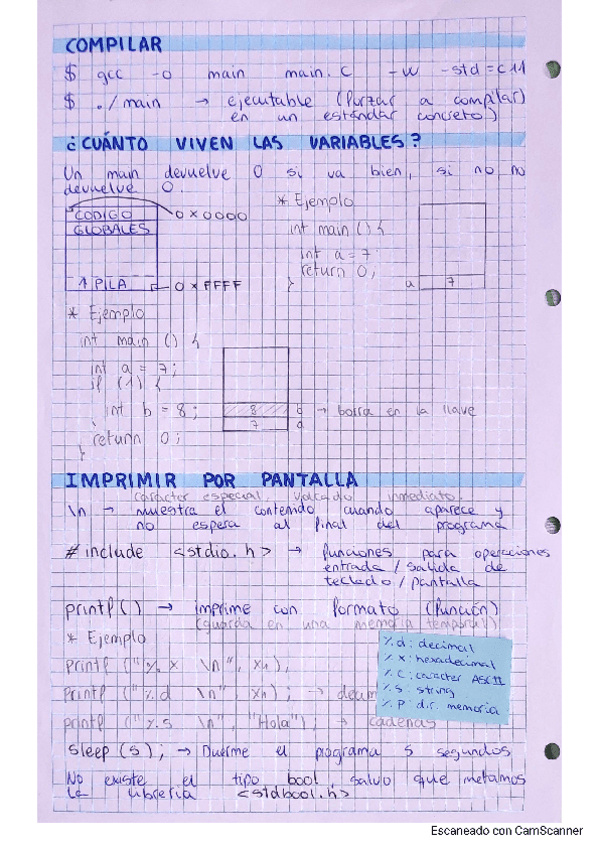 COMPILAR
$ gcc -o main main.c -W -std=c11
$ ./main → ejecutable (forzar a compilar)
en un estándar concreto)
¿CUÁNTO VIVEN LAS VARIABLES?
Un main devuelve 0 si va bien, si no no
devuelve 0.
CODIGO 0x0000
GLOBALES
↑ PILA 0xFFFF
* Ejemplo
int main () {
int a = 7;
return 0;
}
a 7
* Ejemplo
int main () {
int a = 7;
if (1) {
int b = 8;
}
return 0;
}
8 b → borra en la llave
7 a
IMPRIMIR POR PANTALLA
carácter especial, volcado inmediato.
\n → muestra el contenido cuando aparece y
no espera al final del programa
#include <stdio.h> → funciones para operaciones
entrada / salida de
teclado / pantalla
printf() → imprime con formato (función)
(guarda en una memoria temporal)
* Ejemplo
printf ("%x \n", x1);
printf ("%d \n", x1); → decim
printf ("%s \n", "Hola"); → cadenas
%d: decimal
%x: hexadecimal
%c: carácter ASCII
%s: string
%p: dir. memoria
sleep (5); → Duerme el programa 5 segundos
No existe el tipo bool, salvo que metamos
la librería <stdbool.h>
Escaneado con CamScanner